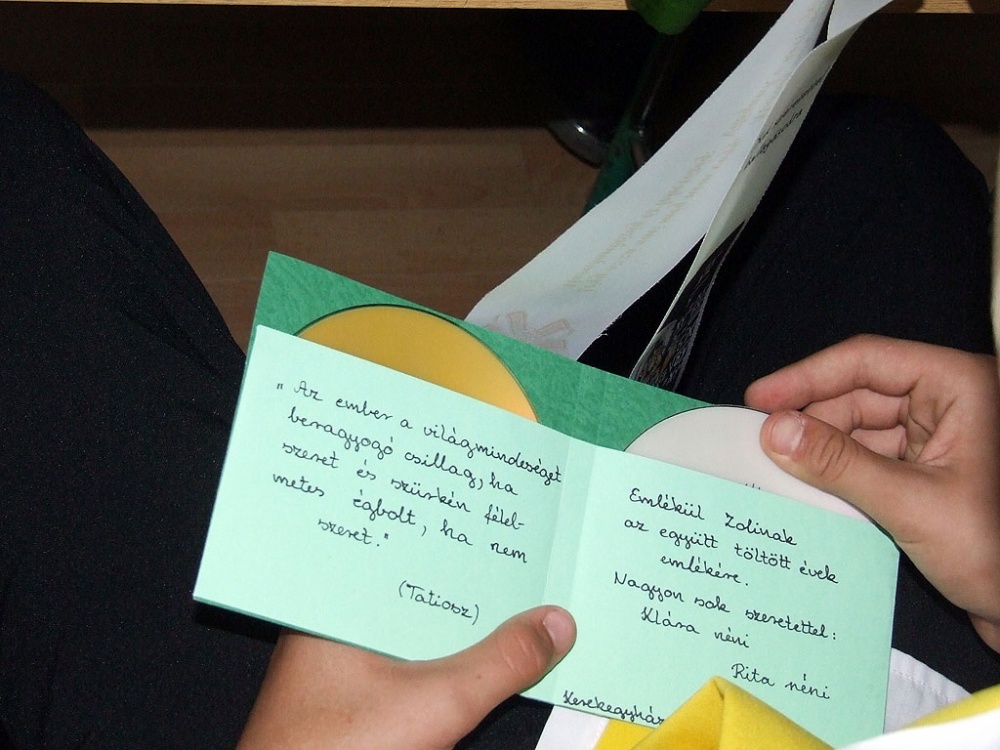 „Az ember a világmindeséget
beragyogó csillag, ha
szeret és szürkén félel-
metes égbolt, ha nem
szeret."
(Tatiosz)
Emlékül Zolinak
az együtt töltött évek
emlékére.
Nagyon sok szeretettel:
Klára néni
Rita néni